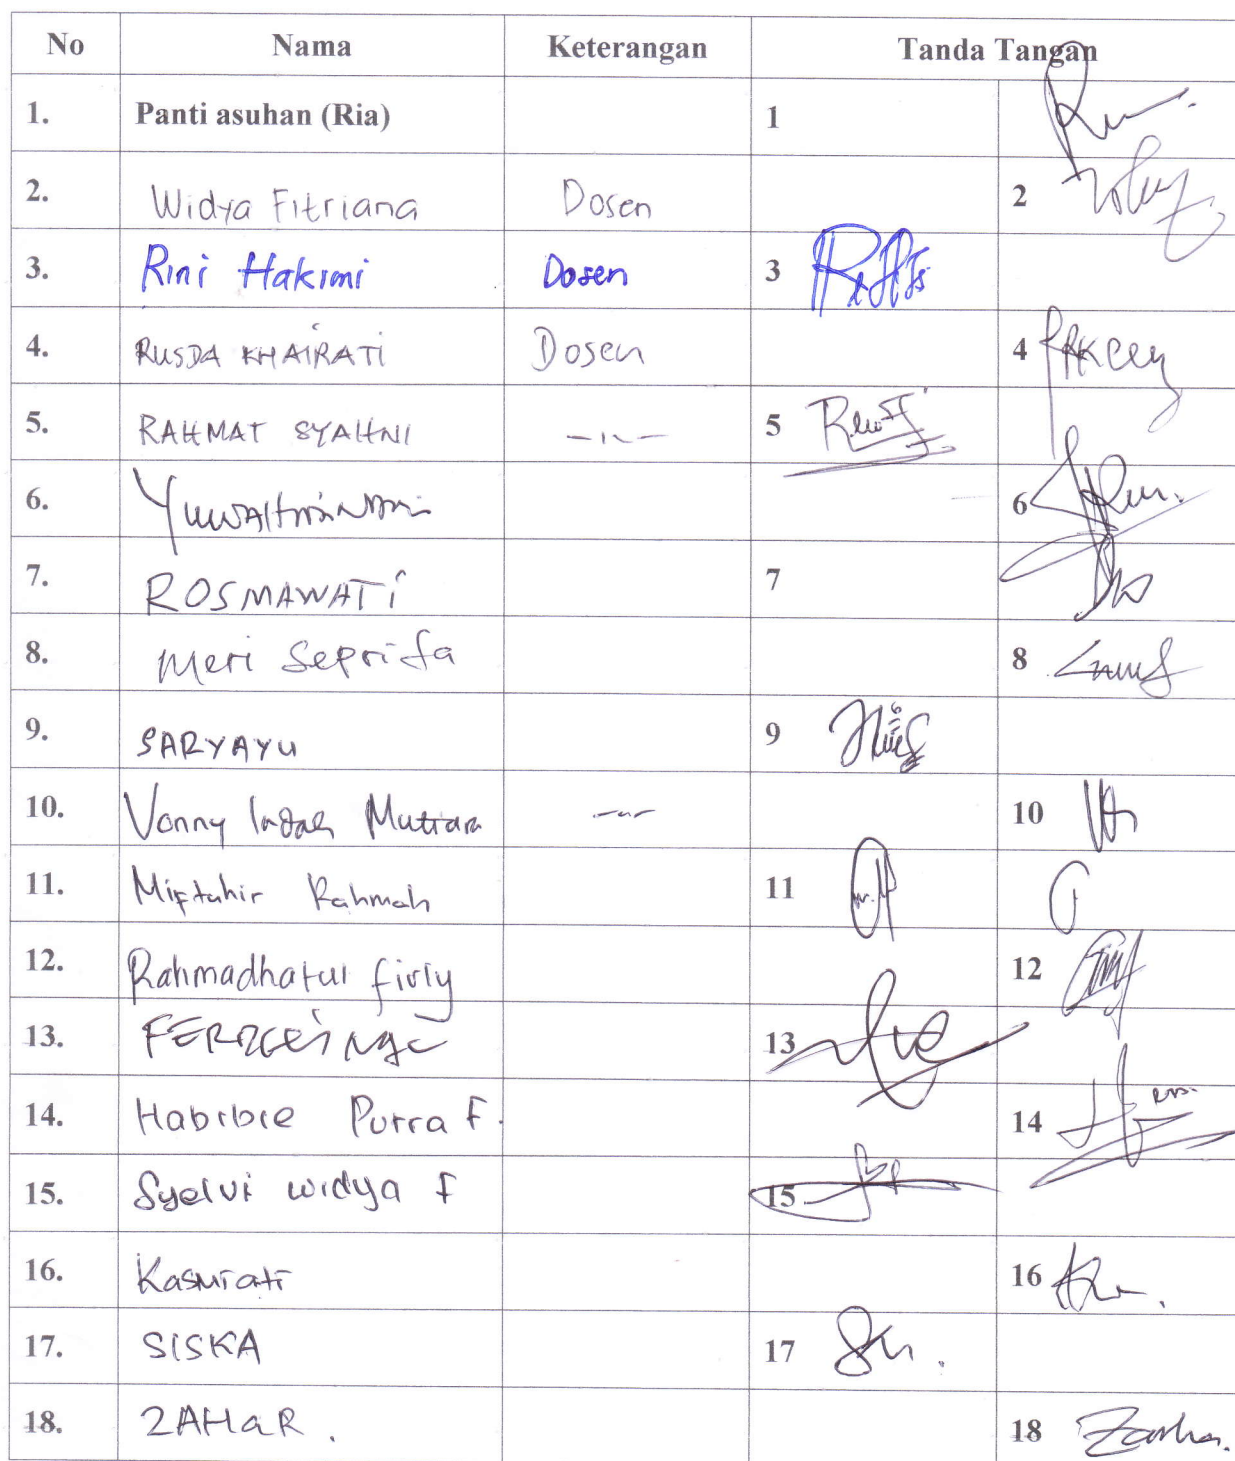 No Nama Keterangan Tanda Tangan
1. Panti asuhan (Ria) 1
2. Widya Fitriana Dosen 2
3. Rini Hakimi Dosen 3
4. RUSDA KHAIRATI Dosen 4
5. RAHMAT SYAHNI -"- 5
6. 6
7. ROSMAWATI 7
8. Meri Seprita 8
9. SARYAYU 9
10. Vonny Indah Mutiara -"- 10
11. Miftahir Rahmah 11
12. Rahmadhatul firly 12
13. 13
14. Habibie Putra F. 14
15. Syelvi widya F 15
16. Kasmiati 16
17. SISKA 17
18. ZAHaR. 18